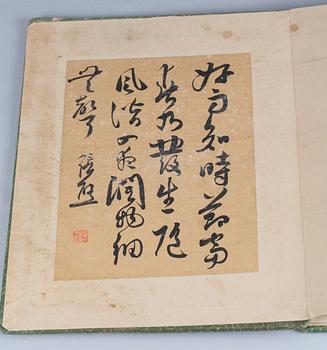 好雨知時節當
春乃發生隨
風潛入夜潤物細
無聲 張